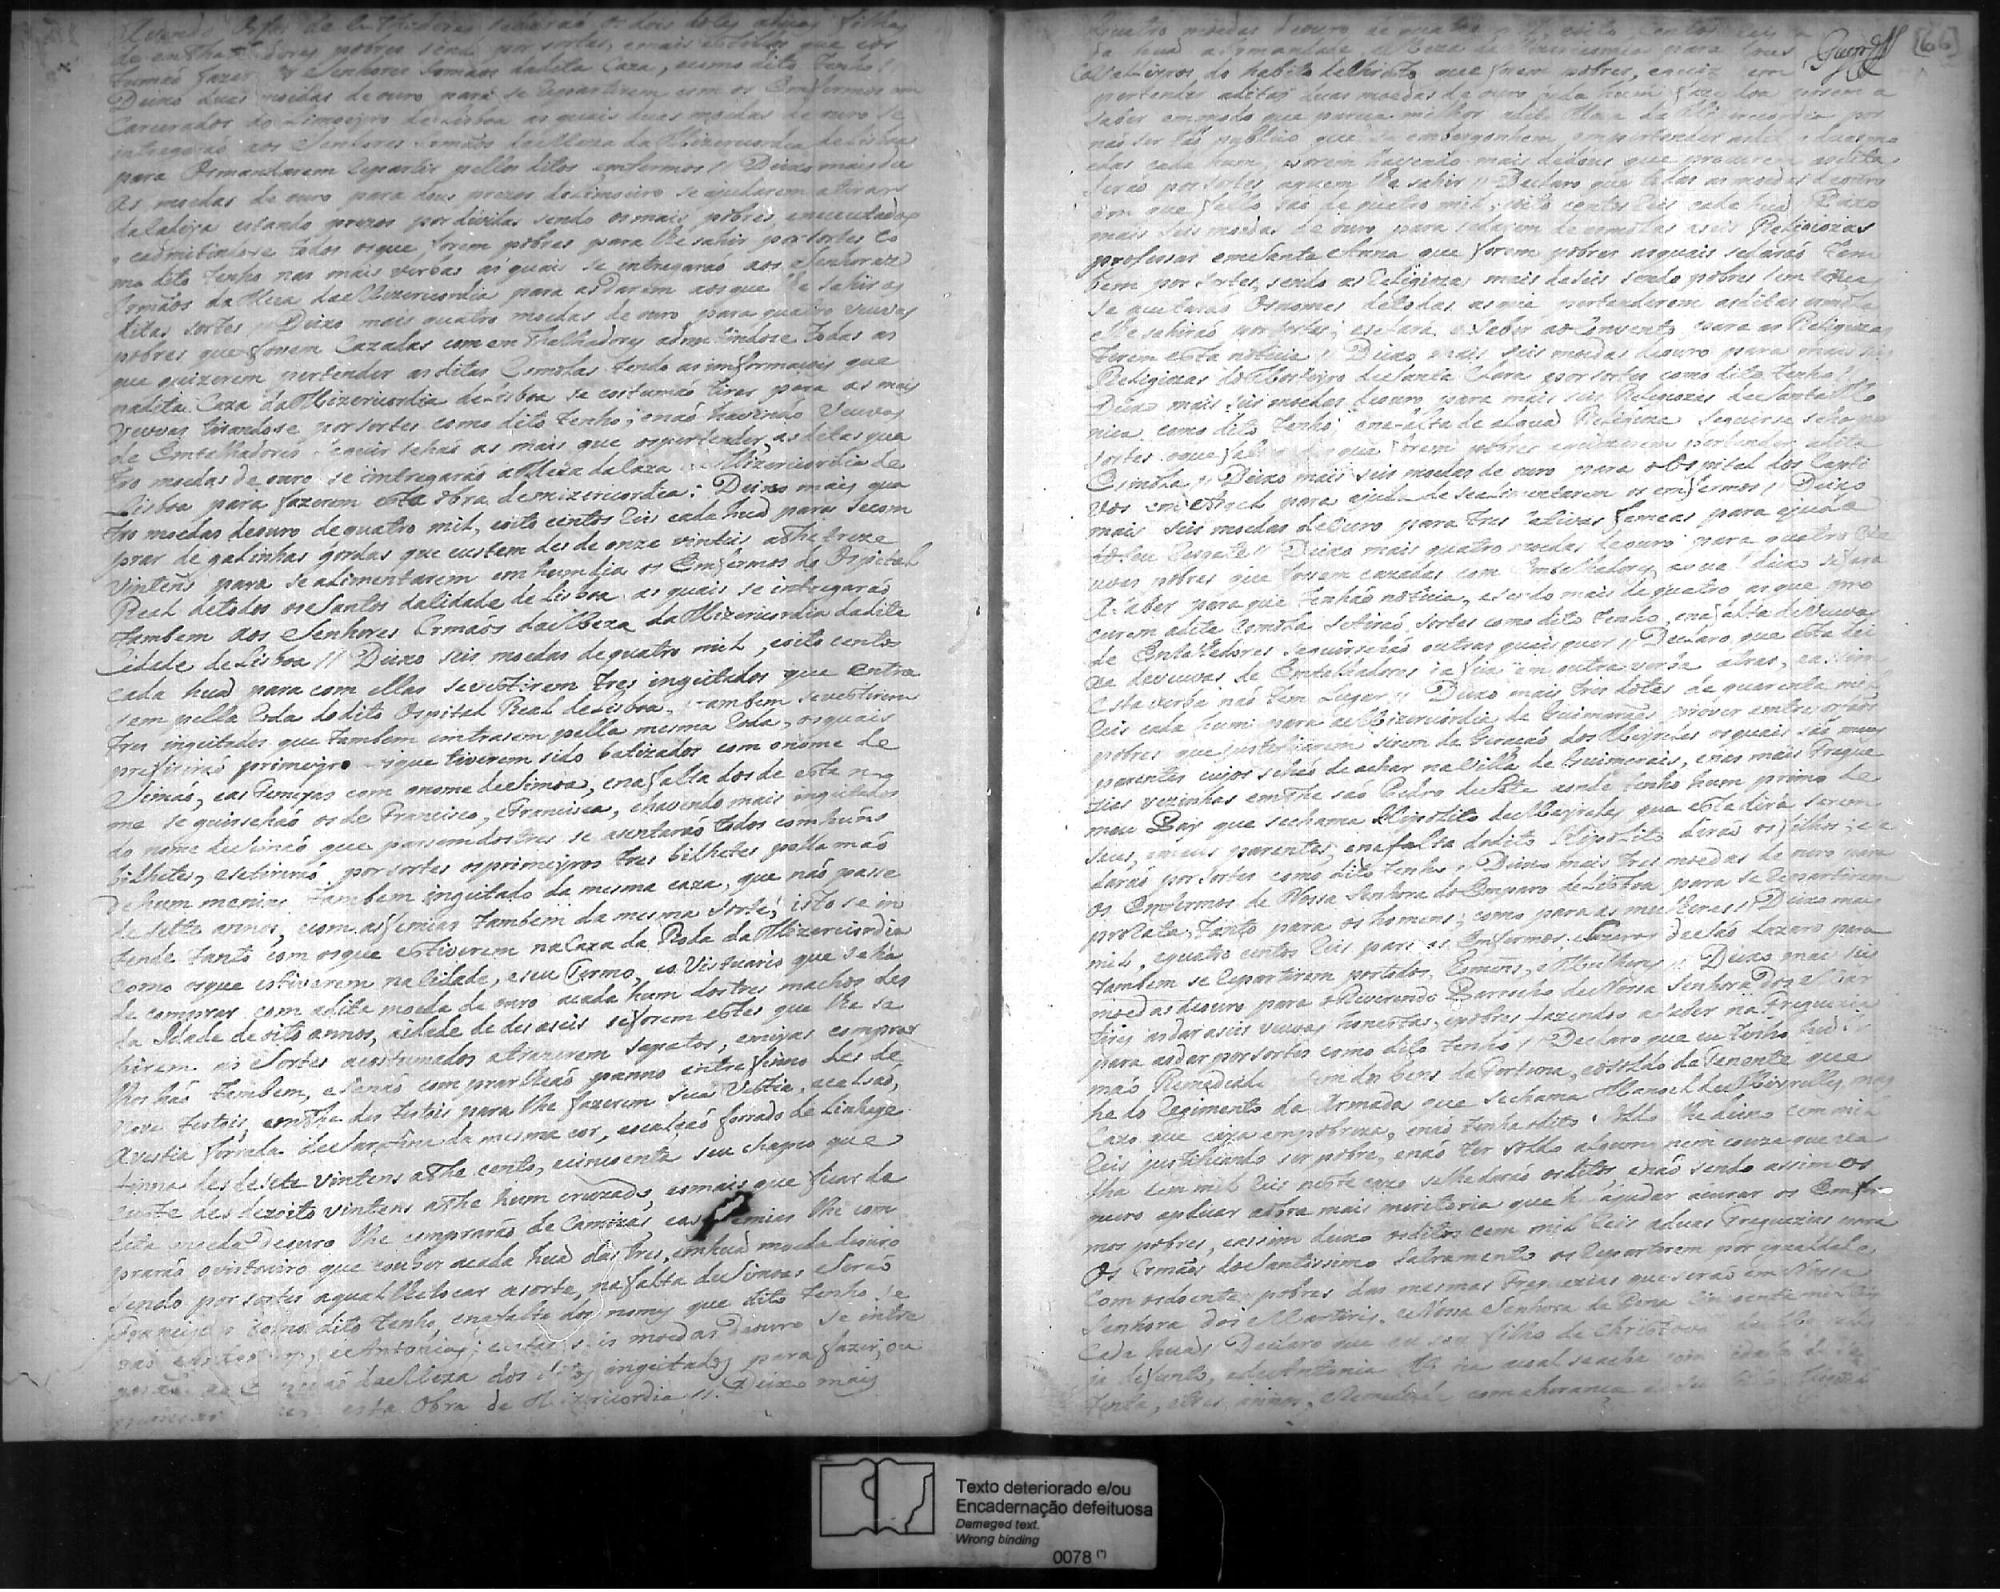 de emtha dores pobres sendo por sortes, e mais esmollas que cos
tumaõ fazer os Senhores Irmaõs da dita Caza, como dito tenho
Deixo duas moedas de ouro para se repartirem com os Emfermos em
Carcerados do Limoeyro de Lisboa as quais duas moedas de ouro se
intregaraõ aos Senhores Irmaõs da Meza da Mizericordia de Lisboa
para Os mandarem repartir pellos ditos emfermos // Deixo mais de
as moedas de ouro para dous prezos do Limoeiro se ajudarem a tirar
da Cadeya estando prezos por dividas sendo os mais pobres
e admitindose todos os que forem pobres para lhe sahir por sortes co
mo dito tenho nas mais verbas as quais se intregaraõ aos Senhores
Irmaõs da Meza da Mizericordia para as darem aos que lhe sahir as
ditas sortes // Deixo mais quatro moedas de ouro para quatro viuvas
pobres que fossem Cazadas com emThalhadores admitindose todas as
que quizerem pertender as ditas Esmolas tendo as imformaçois que
na dita Caza da Mizericordia de Lisboa se costumaõ tirar para as mais
viuvas tirandose por sortes como dito tenho; e naõ havendo Viuvas
de Emtalhadores seguir sehaõ as mais que as pertender, as ditas qua
tro moedas de ouro se intregaraõ a Meza da Caza Mizericordia de
Lisboa para fazerem esta obra de mizericordia: Deixo mais qua
tro moedas de ouro de quatro mil, e oito centos reis cada huã para se com
prar de galinhas gordas que custem des de onze vinteis athe treze
vinteñs para se alimentarem em hum dia os Emfermos do Ospital
Real de todos os Santos da Cidade de Lisboa as quais se intregaraõ
tambem aos Senhores Irmaõs da Meza da Mizericordia da dita
Cidade de Lisboa // Deixo seis moedas de quatro mil, e oito centos
cada huã para com ellas se vestirem tres ingeitados que entra
sem pella roda do dito Ospital Real de Lisboa, tambem se vestirem
tres ingeitadas que tambem entrasem pella mesma roda, os quais
prefiriraõ primeyro os que tiverem sido batizados com o nome de
Simaõ, e as femeyas com o nome de Simoa, e na falta dos de este no
me se guirsehaõ os de Francisco, e Francisca, e havendo mais ingeitados
do nome de Simaõ que pasem dos tres se asentaraõ todos com huns
bilhetes, e setiraraõ por sortes os primeyros tres bilhetes pella maõ
de hum menino tambem ingeitado da mesma caza, que naõ passe
de sette annos, e com as femias tambem da mesma sorte; isto se in
tende tanto com os que estiverem na Caza da Roda da Mizericordia
como os que estiverem na Cidade, e seu Termo, e o Vistuario que se ha
de comprar com a dita moeda de ouro a cada hum dos tres machos des
da Idade de oito annos, a idade de des aseis se forem estes que lhe sa
hirem as Sortes acustumados a trazerem sapatos, e meyas comprar
lhos haõ tambem, e senaõ comprarlheaõ panno entre finno des de
nove tostois athe des tostois para lhe fazerem sua Vestia, e calsaõ,
A vestia forrada de sarafina da mesma cor, e o calçaõ forrado de Linhage
finna des de sete vintens athe cento, e cincoenta seu chapeo que
custe des dezoito vintens athe hum cruzado, e o mais que ficar da
dita moeda de ouro lhe compraraõ de Camizas, e as femias lhe com
praraõ o vistuairo que couber a cada huã das tres, em huã moeda de ouro
sendo por sortes a qual lhe tocar a sorte, na falta de Simoas seraõ
Francisca como dito tenho, e na falta dos nomes que dito tenho se
raõ Antonios, e Antonias; e estas seis moedas de ouro se intre
garaõ ao da Meza dos ditos ingeitados para fazer, ou
esta Obra de Mizericordia // Deixo mais

Quatro moedas de ouro de quatro mil, e oito centos reis
da huã a se mandade, a Meza da Mizericordia para tres
Cavalleiros do habito de Christo que forem pobres, e quiz erem
pertender as ditas duas moedas de ouro cada hum faze
saber em modo que pareça milhor a dita Meza da Mizericordia por
naõ ser taõ publico que se embergonhem em pertender as duas mo
edas cada hum, e porem havendo mais de dous que procurem as ditas
seraõ por sortes a quem lhe sahir // Declaro que todas as moedas de ouro
em que fallo saõ de quatro mil, e oito centos reis cada huã // Deixo
mais seis moedas de ouro para se darem de esmolas a seis Religiozas
professas em Santa Anna que forem pobres as quais se daraõ tam
bem por sortes, sendo as Religiozas mais de seis sendo pobres
se aceitaraõ os nomes de todas as que pertenderem as ditas esmolas
e lhe sahiraõ por sortes; e se fara a Saber ao Convento para as Religiozas
terem esta noticia // Deixo mais seis moedas de ouro para mais seis
Religiozas do Mosteyro de Santa Clara por sortes como dito tenho
Deixo mais seis moedas de ouro para mais seis Religiozas de Santa Mo
nica como dito tenho e na falta de algua Religioza seguirse seha
sortes o que falta que forem pobres e quizerem pertender a dita
Esmola // Deixo mais seis moedas de ouro para o Ospital dos Capti
vos em Argel para ajuda de se alimentarem os emfermos // Deixo
mais seis moedas de ouro para tres Cativas femeas para ajuda
do seu Resgate // Deixo mais quatro moedas de ouro para quatro Vi
uvas pobres que fossem cazadas com Emtalhadores se fara
A saber para que tenhaõ noticia, e sendo mais de quatro as que pro
curem a dita Esmola se tiraõ sortes como dito tenho, e na falta de Viuvas
de Entalhadores seguirsehaõ outras quais quer // Declaro que esta dei
xa das viuvas de Emtalhadores ja fica em outra verba atras, e assim
esta verba naõ tem Lugar // Deixo mais tres dotes de quarenta mil
reis cada hum para a Mizericordia de Guimaraẽs prover entre orfãs
pobres que justificarem serem da Geracaõ dos Meyreles os quais saõ meus
parentes cujos sehaõ de achar na Villa de Guimarais, e nas mais Fregue
zias vezinhas emthe saõ Pedro de Fite aonde tenho hum primo de
meu Pay que se chama Hipolito de Meyreles que este dirá serem
seus, e meus parentes, e na falta do dito Hipolito diraõ os filhos; e se
daraõ por sortes como dito tenho // Deixo mais tres moedas de ouro para
os Emfermos de Nossa Senhora do Emparo de Lisboa para se repartirem
pro Rata, tanto para os homens, como para as mulheres // Deixo mais
mil, e quatro centos reis para os Emfermos Lazaros de saõ Lazaro para
tambem se repartirem por todos, Homeñs, e Mulheres // Deixo mais seis
moedas de ouro para o Reverendo Parrocho de Nossa Senhora dos Mar
tires as dar a seis viuvas honestas, e pobres fazendo a saber na Freguezia
para as dar por sortes como dito tenho // Declaro que eu tenho hum Ir
maõ Remediado em dos bens da Fortuna, e o soldo de Tenente que
he do Regimento da Armada que se chama Manoel de Meirelles, mas
Cazo que caya em pobreza, e naõ tenha o dito soldo lhe deixo cem mil
reis justificando ser pobre, e naõ ter soldo algum nem couza que va
lha cem mil reis neste cazo selhe daraõ os ditos, e naõ sendo assim os
quero aplicar a obra mais meritoria que he ajudar a curar os Emfer
mos pobres, e assim deixo os ditos cem mil reis a duas Freguezias para
os Irmaõs do Santissimo Sacramento os repartirem por igualdade
Com os doentes pobres das mesmas Freguezias que seraõ em Nossa
Senhora dos Martires, e Nossa Senhora da Pena sincoenta mil reis
Cada huã // Declaro que eu sou filho de Christovaõ de Meyreles
ja defunto, e de Antonia a qual se acha com idade de se
tenta, e tres annos, e Remediada com a herança

Guerra
166

Texto deteriorado e/ou
Encadernação defeituosa
Damaged text.
Wrong binding
0078 (*)